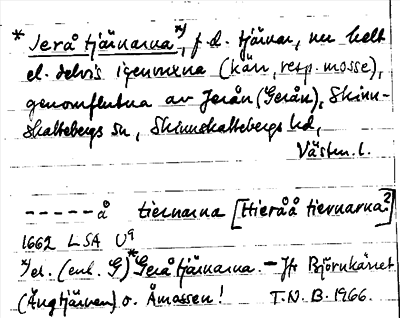 * Jerå tjärnarna *), f.d. tjärnar, nu helt
el. delvis igenvuxna (kärr, resp. mosse),
genomflutna av Jerån (Gerån), Skinn-
skattebergs sn, Skinnskattebergs hd,
Västm. l.
-----å tiernarna [Hieråå tiernarna?]
1662 LSA U9
*) el. (enl. G) *Gerå tjärnarna. - Jfr Björnkärret
(Ängtjärnen) o. Åmossen! T.N.B. 1966.